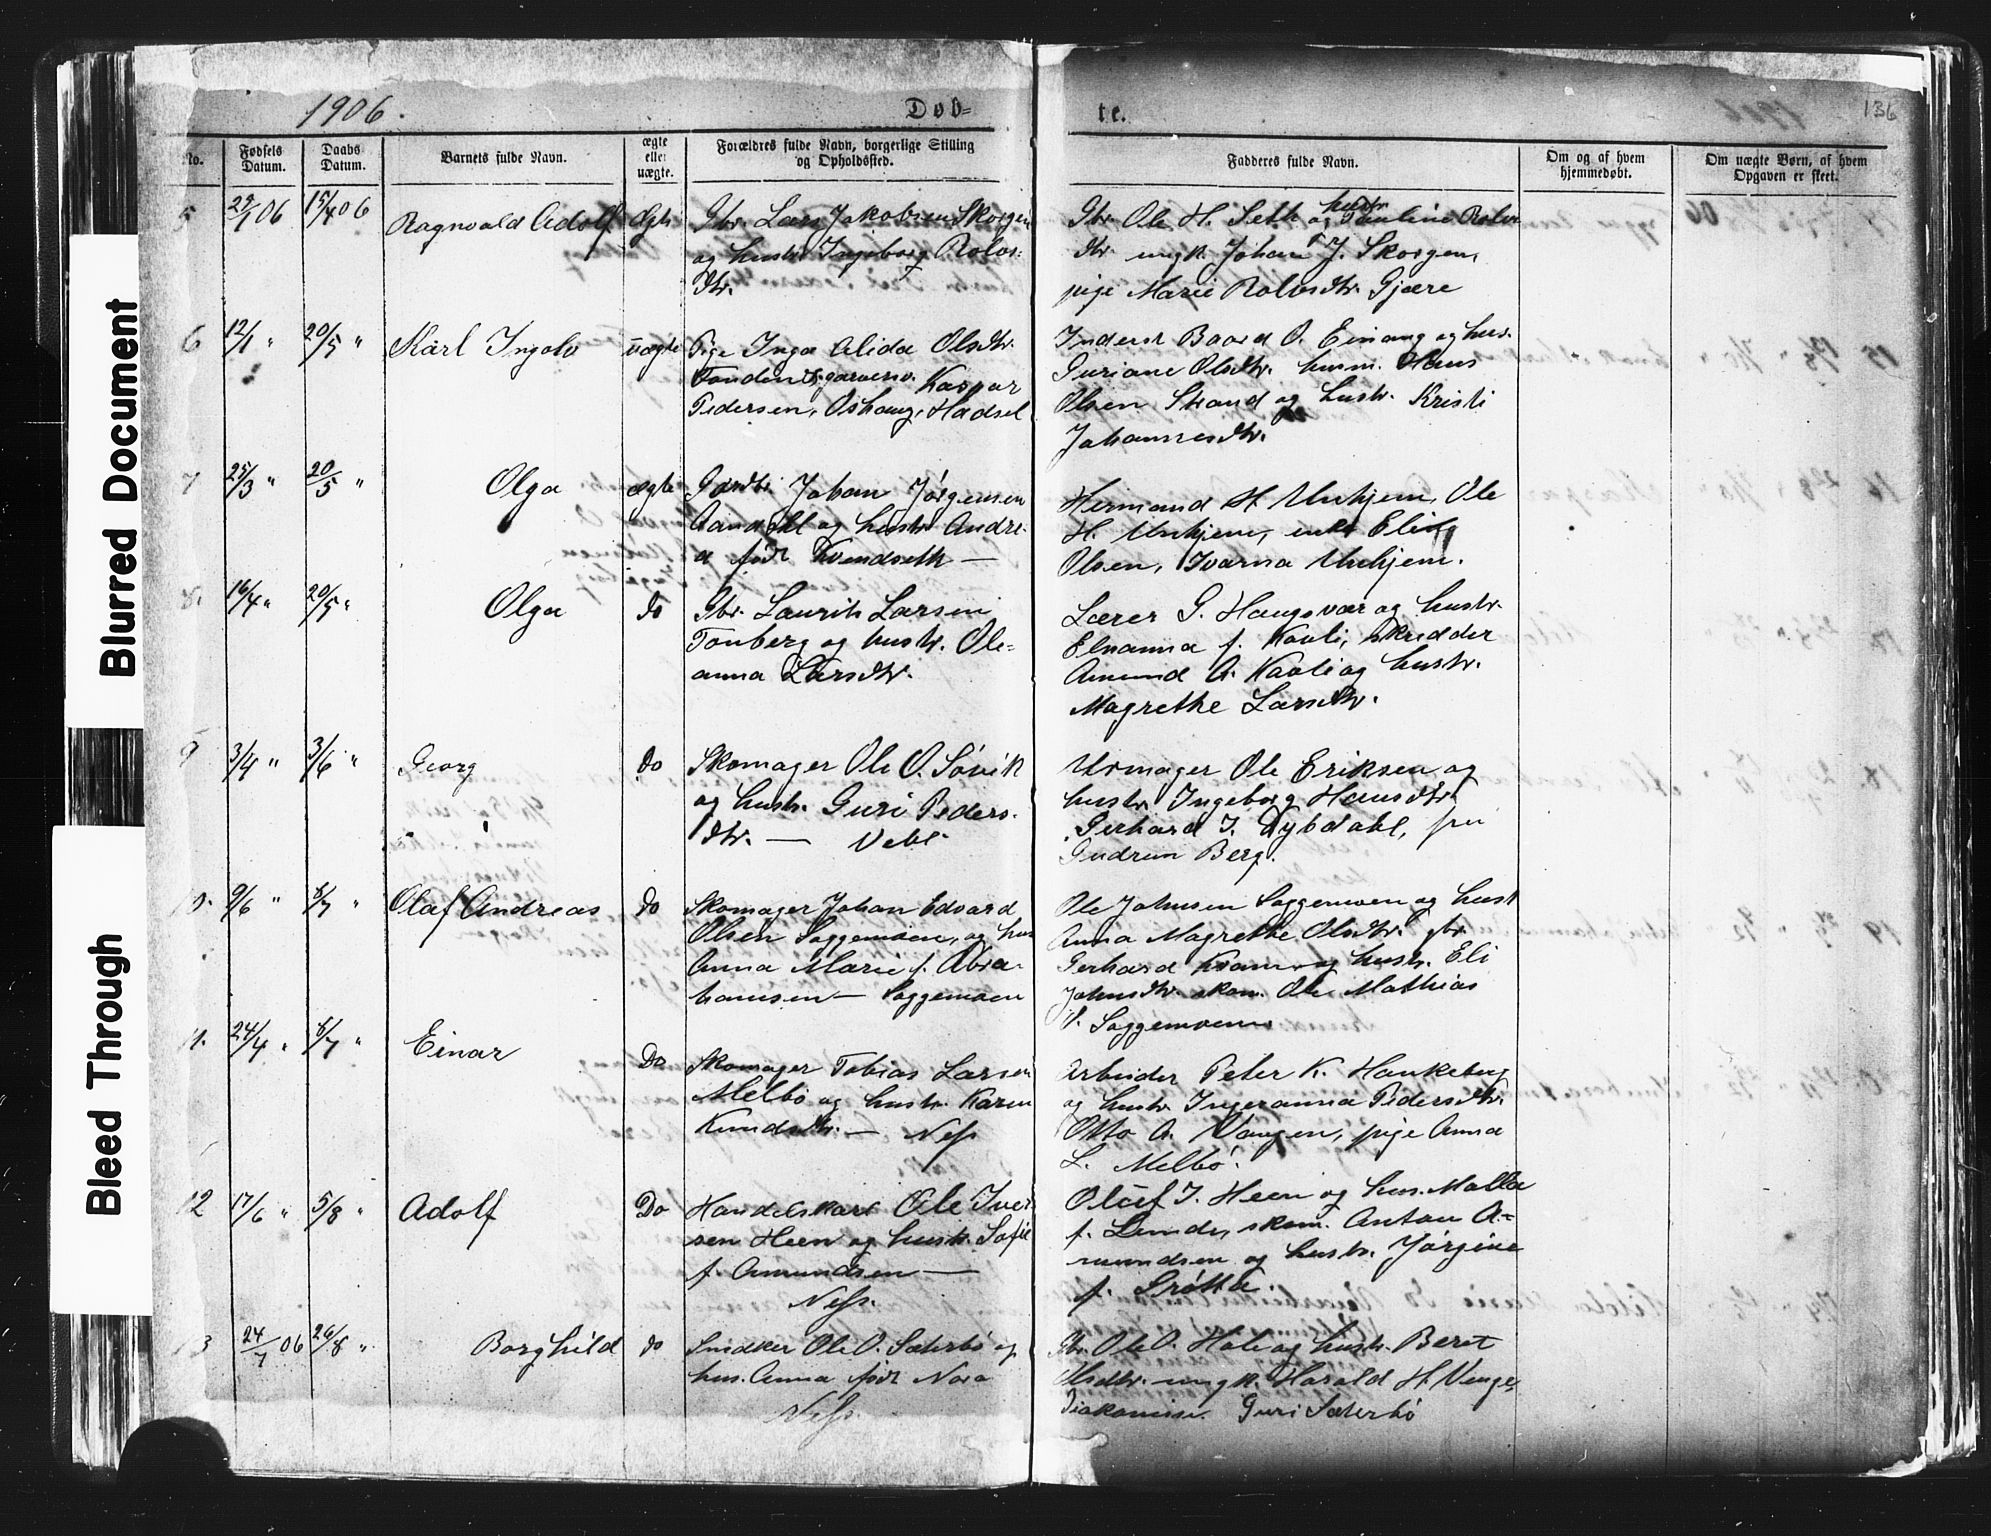 1906.
Døb=
te.
1906
136
No.
Fødsels Datum.
Daabs Datum.
Barnets fulde Navn.
ægte eller uægte.
Forældres fulde Navn, borgerlige Stilling
og Opholdssted.
Fadderes fulde Navn.
Om og af hvem
hjemmedøbt.
Om uægte Børn, af hvem
Opgaven er skeet.
5 29/1 06 15/4 06 Ragnvald Adolf Ægte
Gbr. Lars Jakobsen Skorgen
og hustr. Ingeborg Rolvs-
dtr.
Gbr. Ole H. Seth og hustr. Pauline Rolvs
dtr. ungk. Johan J. Skorgen,
pige Marie Rolvsdtr. Gjære
6 12/1 " 20/5 " Karl Ingolv uægte
Pige Inga Alida Olsdtr.
Kaspar
Pedersen, Oshaug, Hadsel
Inderst Baard O. Einang og hus.
Guriane Olsdtr. husm. Hans
Olsen Strand og hustr. Kristi
Johannesdtr.
7 25/3 " 20/5 " Olga ægte
Gardbr. Johan Jørgensen
Aandahl og hustr. Andre-
a født Kvendseth —
Hermand H. Unhjem, Ole
H. Unhjem, enke Eli
Olsen, Ivarna Unhjem.
8. 16/4 " 20/5 " Olga do
Gbr. Laurits Larsen
Tonberg og hustr. Ole=
anna Larsdtr.
Lærer G. Haugsvær og hustr.
Elvanna f. Kavli, skredder
Amund A. Kavli og hustr.
Magrethe Larsdtr.
9 3/4 " 3/6 " Georg do
Skomager Ole O. Søvik
og hustr. Guri Peders-
dtr. — Veblungsnes
Urmager Ole Eriksen og
hustr. Ingeborg Hansdtr.
Gerhard I. Dybdahl, fru
Gudrun Berg.
10. 9/6 " 8/7 " Olaf Andreas do
Skomager Johan Edvard
Olsen Soggemoen, og hus
Anna Marie f. Abra-
hamsen — Soggemoen
Ole Johnsen Soggemoen og hust
Anna Magrethe Olsdtr. gbr.
Gerhard Kvam og hustr. Eli
Johnsdtr. skom. Ole Mathias
O. Soggemoen
11. 24/4 " 8/7 " Einar Do
Skomager Tobias Larsen
Melbø og hustr. Karen
Knudsdtr. — Ness
Arbeider Peter K. Haukeberg
og hustr. Ingeranna Pedersdtr.
Otto A. Vangen, pige Anna
L. Melbø.
12 17/6 " 5/8 " Adolf Do
Handelskarl Ole Iver
sen Heen og hustr. Sofie
f. Amundsen —
Ness.
Oluf I. Heen og hus. Malla
f. Lunde, skom. Anton A=
mundsen og hustr. Jørgine
f. Grøtta.
13 24/7 06 26/8 " Borghild do
Snedker Ole O. Sæterbø og
hus. Anna født Nora
Ness.
Gbr. Ole O. Hole og hustr. Beret
Olsdtr. ungk. Harald H. Venge,
Diakonisse Guri Sæterbø
Blurred Document
Bleed Through